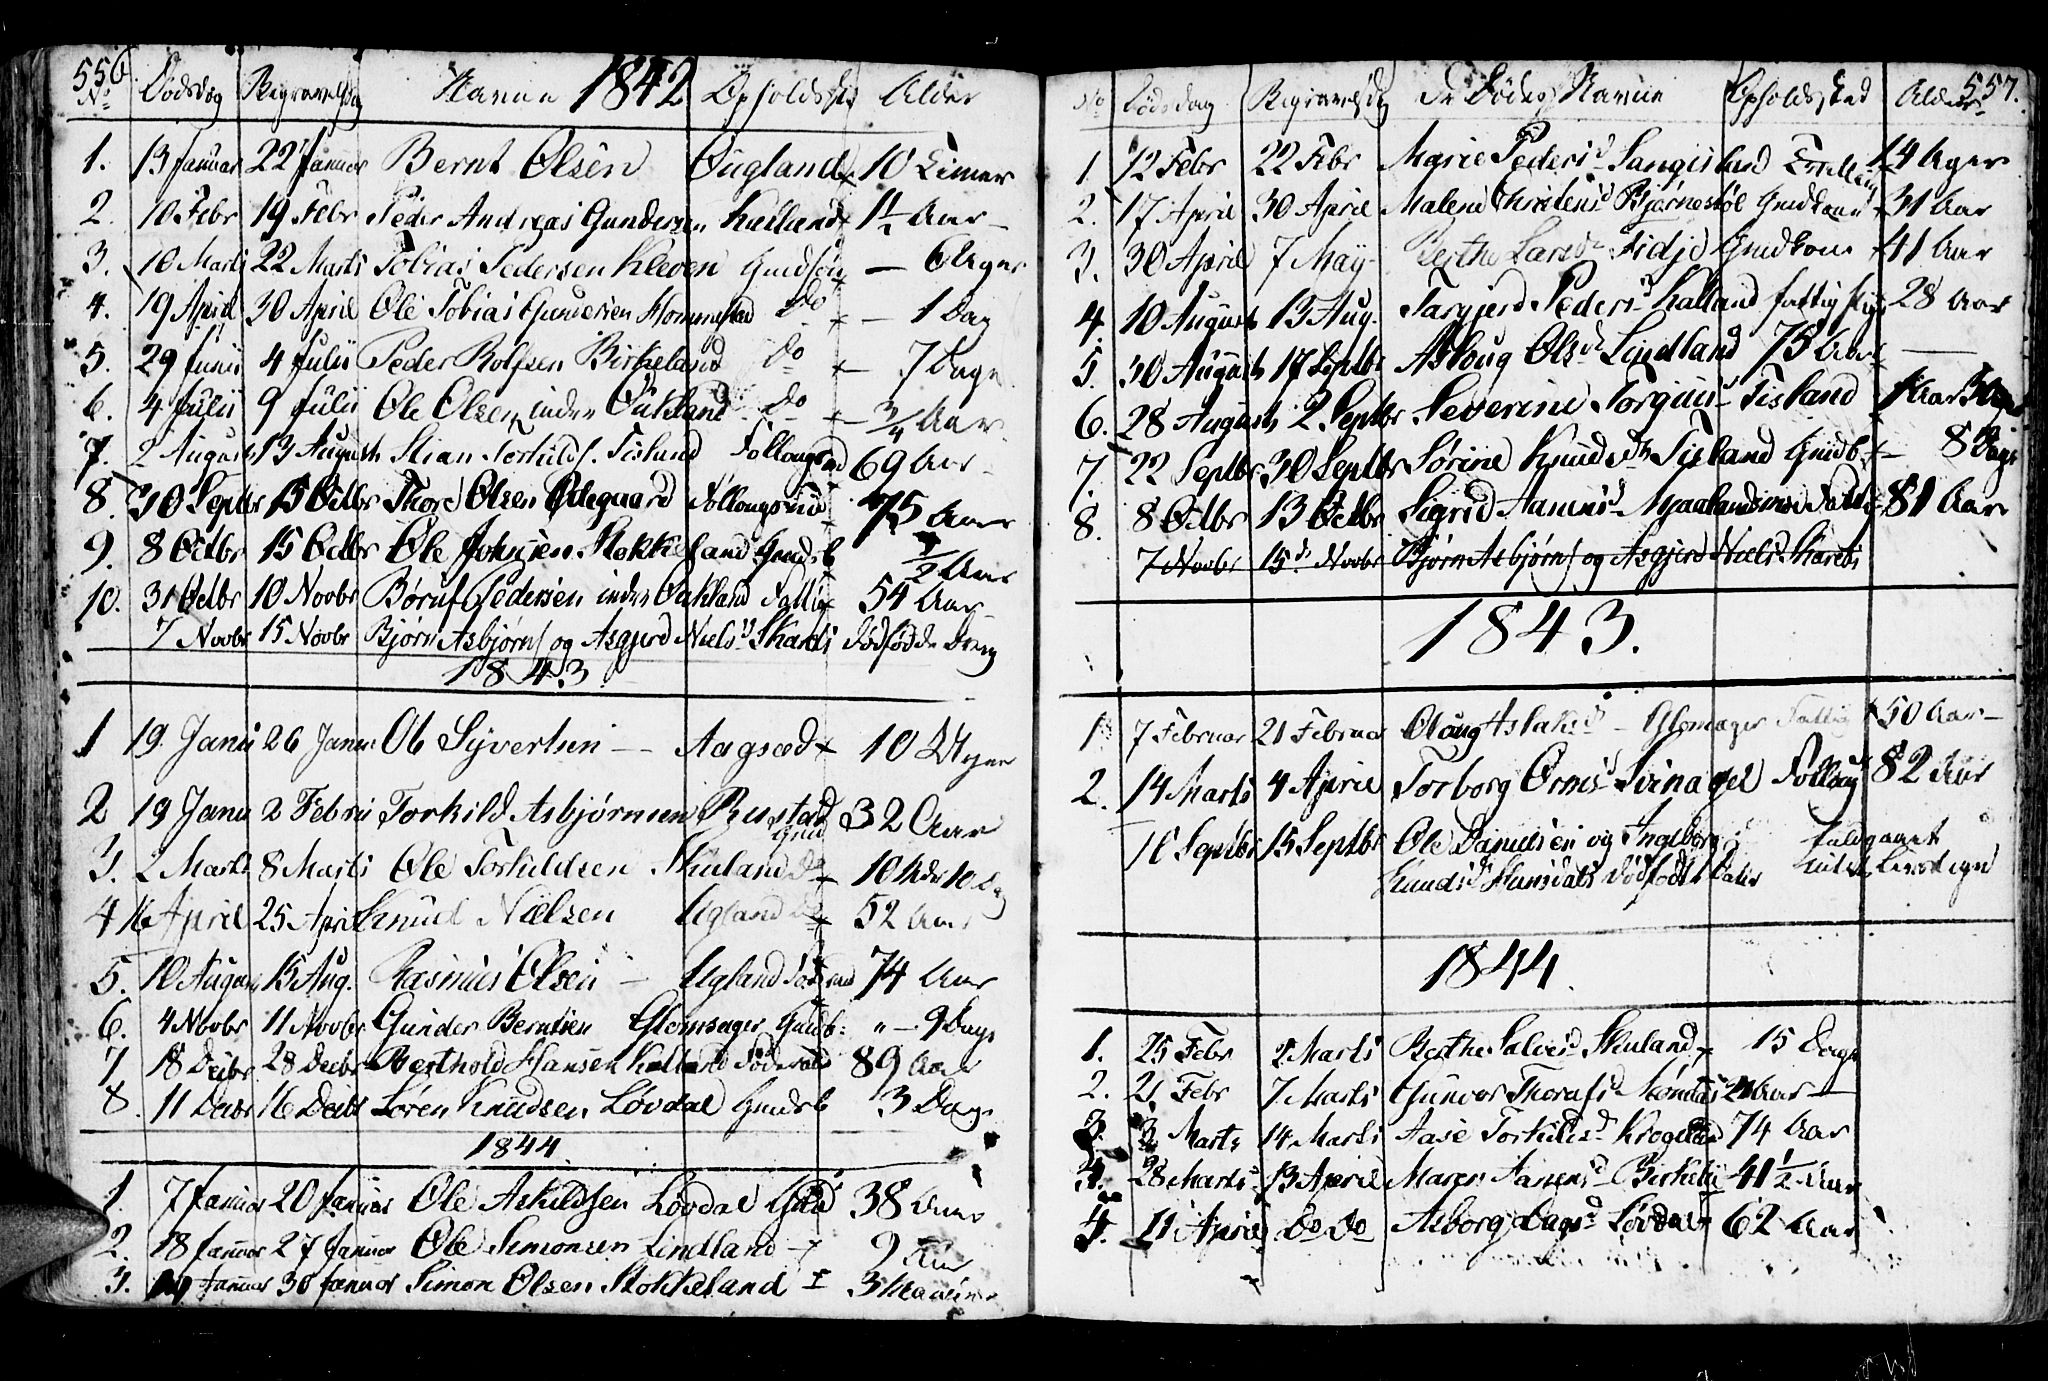 556.
No Dødsdag Begravelsdag Navne 1842 Opholdssted Alder
1. 13 Januar 22 Januar Bernt Olsen Ougland 10 Timer
2. 10 Febr 19 Febr Peder Andreas Gundersen Kalland 1½ Aar
3. 10 Marts 22 Marts Tobias Pedersen Kleven Gmdsøn 6 Uger
4. 19 April 30 April Ole Tobias Gundersen Hommestad Do 1 Dag
5. 29 Junii 4 Julii Peder Rolfsen Birkeland Do 7 Dage
6. 4 Julii 9 Julii Ole Olsen indre Oukland Do 3/4 Aar
7. 2 August 13 August Stian Torkilds. Tisland Follougsmd 69 Aar
8. 30 Septbr 15 Octbr Thore Olsen Ødegaard Follougsmd 75 Aar
9. 8 Octbr 15 Octbr Ole Johnsen Stokkeland Gmdsb ½ Aar
10. 31 Octbr 10 Novbr Børuf Pedersen indre Oukland Fattig 54 Aar
7 Novbr 15 Novbr Bjørn Asbjørns og Asgjerd Nielsd Skarets dødfødde Dreng
1843
1 19 Janu 26 Janu Ole Syvertsen Aagsæd 10 Uger
2 19 Janu 2 Febru Torkild Asbjørnsen Rustad Gmd 32 Aar
3. 2 Marts 8 Marts Ole Torkildsen Skuland Do 10 Aar 10 Dag
4 16 April 25 April Knud Nielsen Ugland Do 52 Aar
5. 10 August 15 Aug. Rasmus Olsen Ugland 74 Aar
6. 4 Novbr 11 Novbr Gunder Berntsen Glomsager Gmdb: 9 Dage
7 18 Decbr 28 Decbr Berthold Hansen Kalland Føderaad 89 Aar
8. 11 Decbr 16 Decbr Søren Knudsen Løvdal Gmdsb 3 Dage
1844
1. 7 Januar 20 Januar Ole Askildsen Løvdal Gmd 38 Aar
2. 18 Januar 27 Januar Ole Simonsen Lindland 9 Aar
3. Januar 30 Januar Simon Olsen Stokkeland 3 Maaneder
557.
No Dødsdag Begravelsdag De Dødes Navne Opholdssted Alder
1 12 Febr 22 Febr Marie Pedersd Langisland 14 Uger
2. 17 April 30 April Malene Christensd Bjørnestøl Gmdkone 31 Aar
3. 30 April 7 May Berthe Larsd Fidje Gmdkone 41 Aar
4. 10 August 13 Aug. Targjerd Pedersd Kalland fattig Pige 28 Aar
5. 30 August 17 Septbr Asloug Olsd Lindland 75 Aar
6. 28 August 2 Septbr Severine Torgusd Tisland 1 Aar
7 22 Septbr 30 Septbr Sørine Knudsd Tisland Gmdb 8 Dage
8. 8 Octbr 13 Octbr Sigrid Aanensd Mjaalandsmoe Fattig 81 Aar
7 Novbr 15d Novbr Bjørn Asbjørns og Asgjerd Nielsd Skarets
1843.
1 7 Februar 21 Februar Oloug Aslaksd Glomsager Fattig 50 Aar
2. 14 Marts 4 April Torborg Ormsd Svinagel Follougk 82 Aar
10 Septbr 15 Septbr Ole Danielsen og Ingeborg fuldgaaet
Knudsd Hunsdals dødfødt Datter
1844.
1. 25 Febr 2 Marts Berthe Salvesd Skuland 15 Dage
2. 21 Febr 7 Marts Gunvor Thorasd 21 Aar
3. 3 Marts 14 Marts Aase Torkildsd Krogeland 74 Aar
4. 28 Marts 13 April Maren Aanensd Birkeli 41½ Aar
4. 11 April Do Do Asborg Dagsd Løvdal 62 Aar